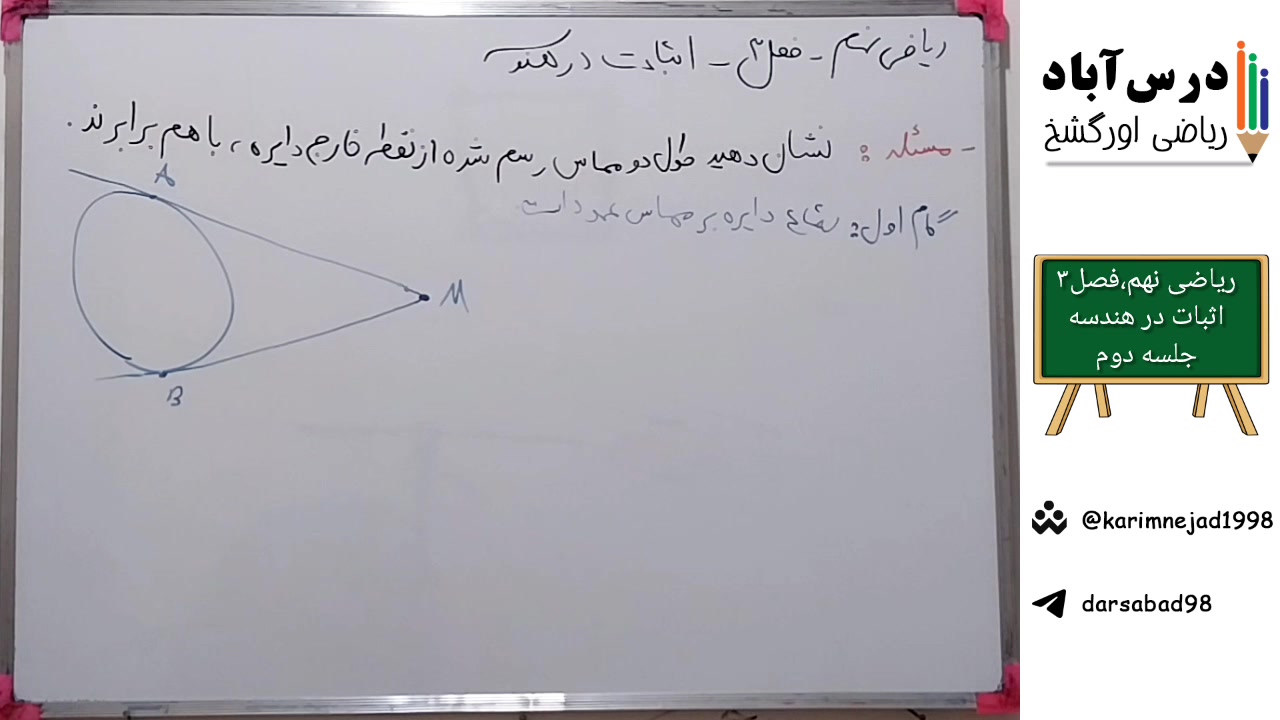 ریاضی نهم - فصل ۳ - اثبات در هندسه
- مسئله : نشان دهید طول دو مماس رسم شده از نقطه خارج دایره ، با هم برابرند .
گام اول : شعاع دایره بر مماس عمود است
A
M
B
درس آباد
ریاضی اورگشخ
ریاضی نهم،فصل۳
اثبات در هندسه
جلسه دوم
@karimnejad1998
darsabad98